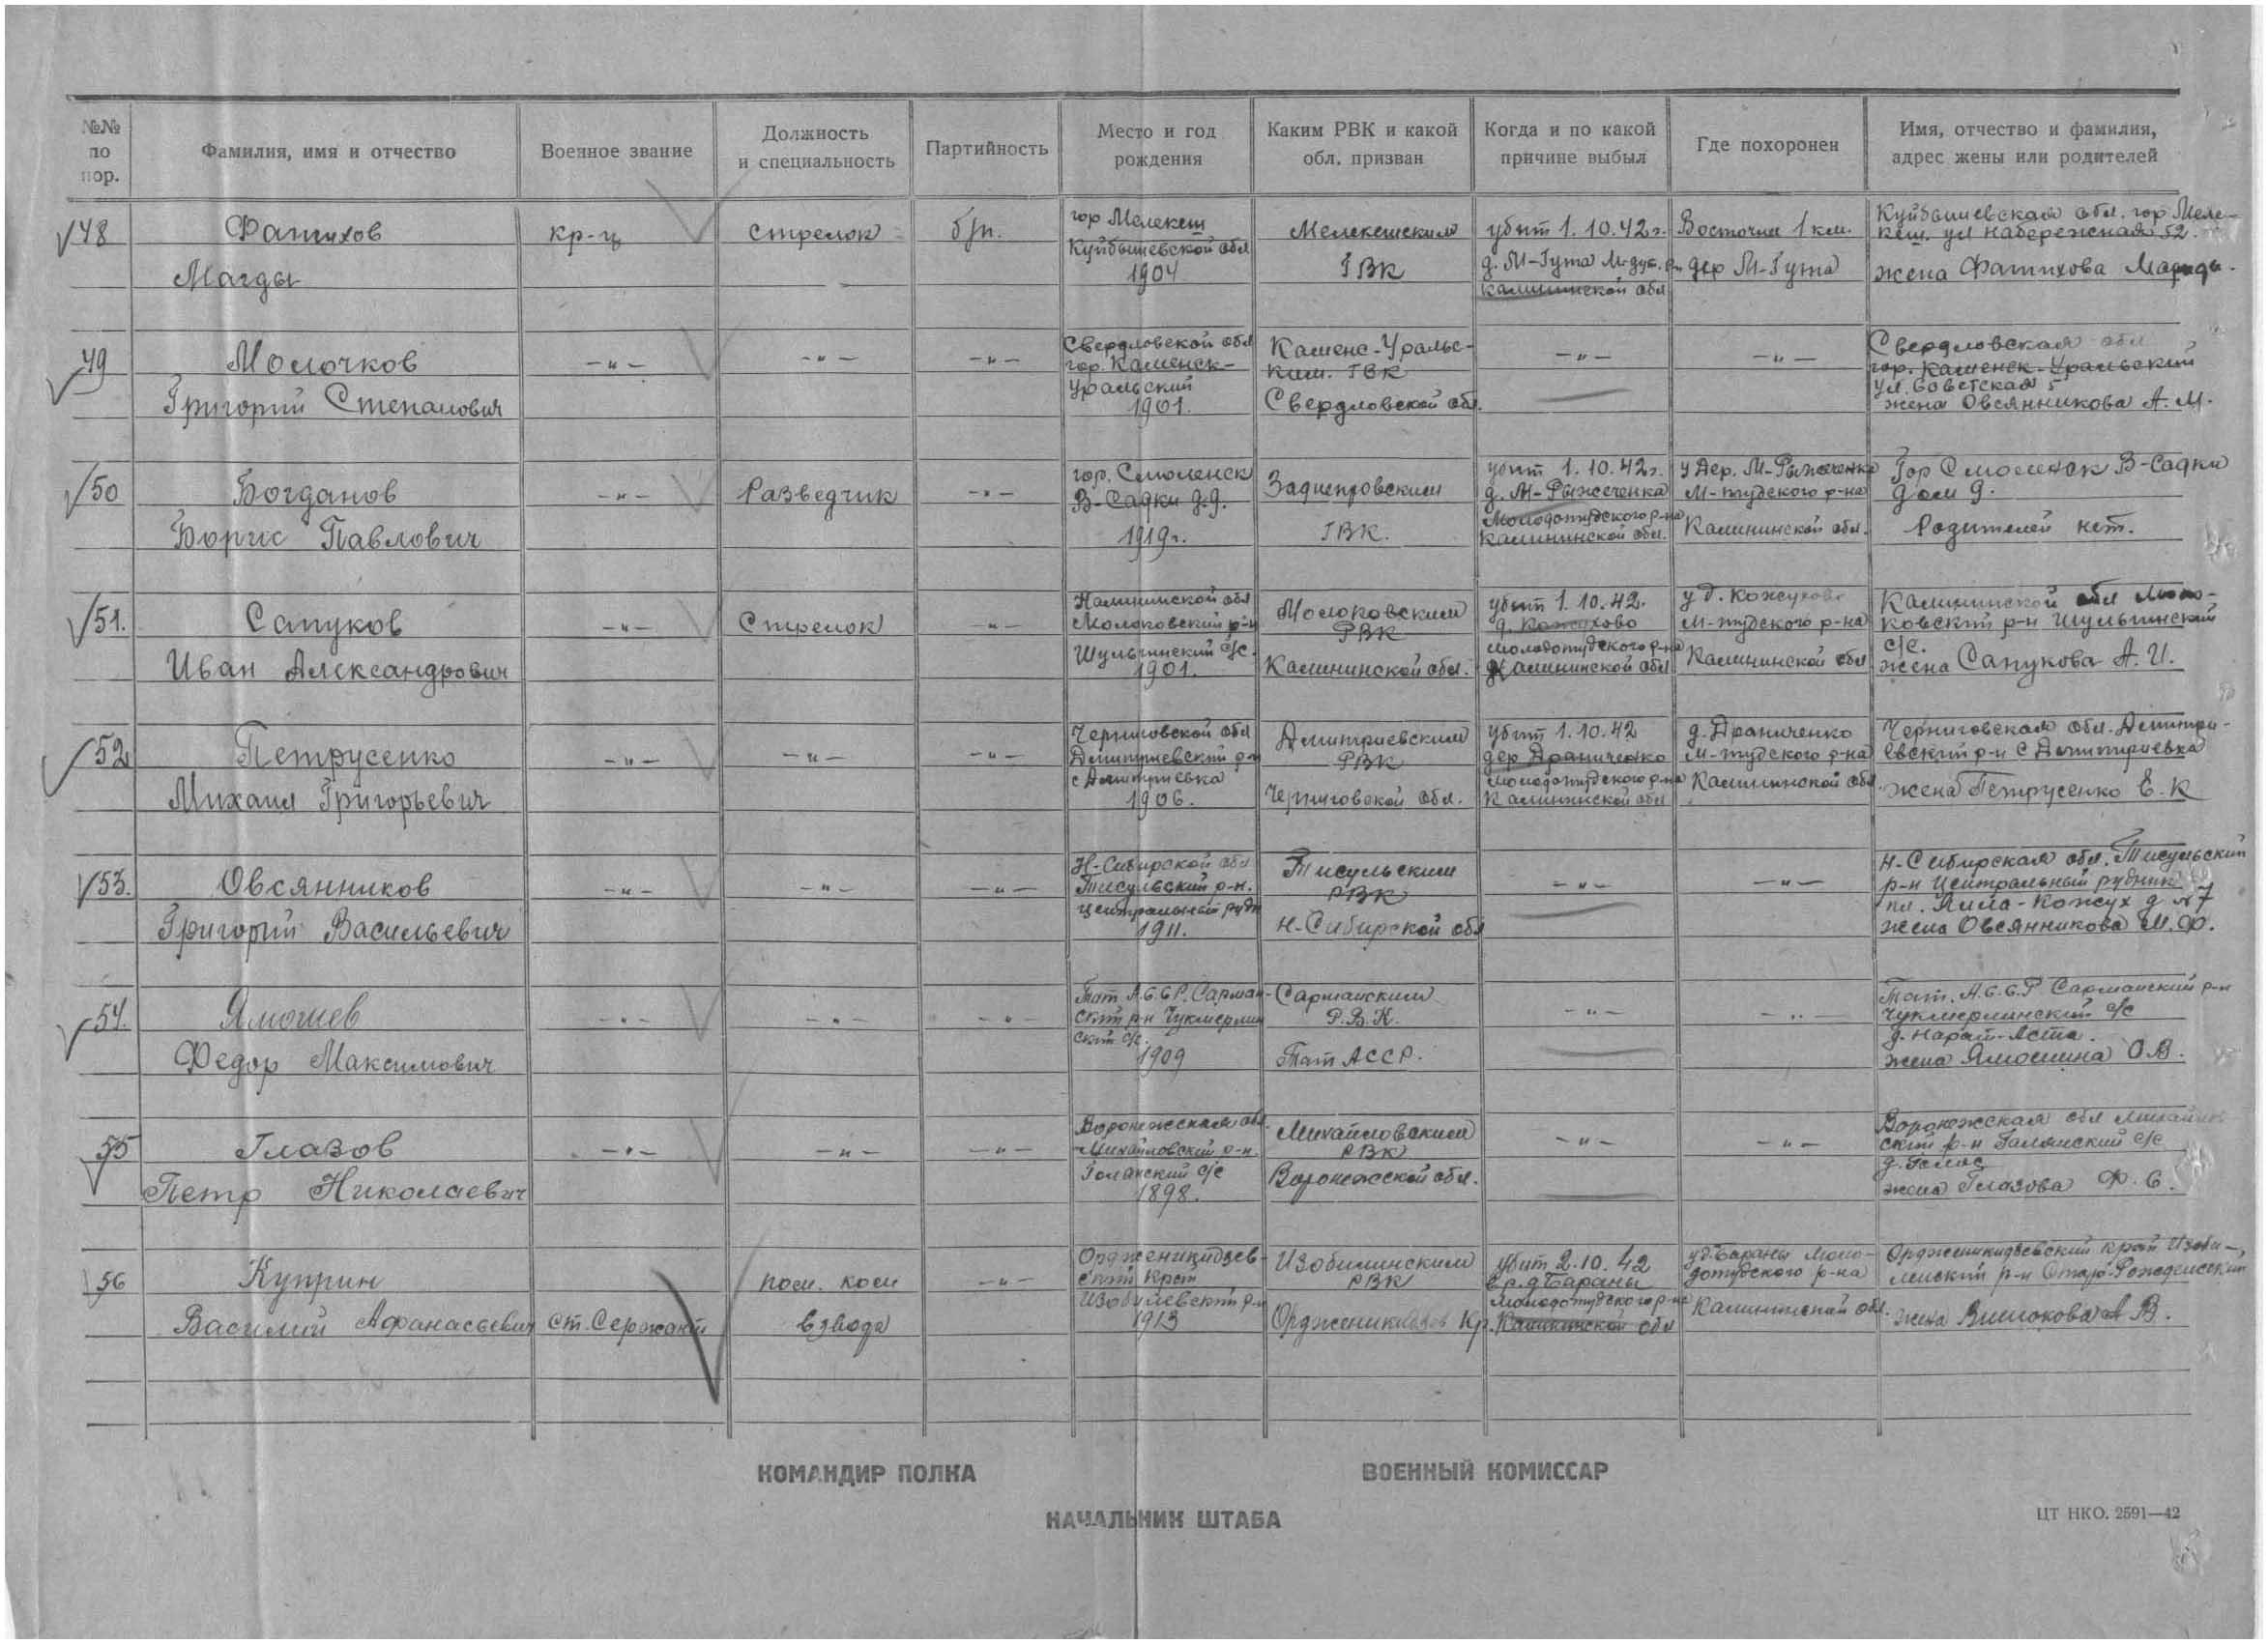 №№ по пор.
Фамилия, имя и отчество
Военное звание
Должность и специальность
Партийность
Место и год рождения
Каким РВК и какой обл. призван
Когда и по какой причине выбыл
Где похоронен
Имя, отчество и фамилия, адрес жены или родителей
48
Фатихов
Магды
кр-ц
стрелок
б/п.
гор Мелекеш
Куйбышевской обл
1904
Мелекешским
ГВК
убит 1.10.42 г.
д. М-Тута
Калининской обл
Восточнее 1 км.
дер М-Тута
Куйбышевская обл. гор Меле-
кеш. ул Набережная 52.
жена Фатихова
49
Молочков
Григорий Степанович
-"-
-"-
-"-
Свердловской обл
гор. Каменск-
Уральский
1901.
Каменс-Уральс-
ким. ГВК
Свердловской обл.
-"-
-"-
Свердловская обл
гор. Каменск-Уральский
ул. Советская 5
жена Овсянникова А. М.
50
Богданов
Борис Павлович
-"-
Разведчик
-"-
гор. Смоленск
В-Садки д.9.
1919г.
Заднепровским
ГВК.
убит 1.10.42г.
д. М-Рыжеченка
Молодотудского р-на
Калининской обл.
у дер. М-Рыжеченка
М-тудского р-на
Калининской обл.
Гор Смоленск В-Садки
дом 9.
Родителей нет.
51.
Сапуков
Иван Александрович
-"-
Стрелок
-"-
Калининской обл
Молоковский р-н
Шульгинский с/с.
1901.
Молоковским
РВК
Калининской обл.
убит 1.10.42.
д. Кожухово
Молодотудского р-на
Калининской обл
у д. Кожухово
М-тудского р-на
Калининской обл
Калининской обл Моло-
ковский р-н Шульгинский
с/с.
жена Сапукова А. И.
52
Петрусенко
Михаил Григорьевич
-"-
-"-
-"-
Черниговской обл
Дмитриевский р-н
с Дмитриевка
1906.
Дмитриевским
РВК
Черниговской обл.
убит 1.10.42
дер Драниченко
Молодотудского р-на
Калининской обл
д. Драниченко
М-тудского р-на
Калининской обл
Черниговская обл. Дмитри-
евский р-н с Дмитриевка
жена Петрусенко Е. К
53.
Овсянников
Григорий Васильевич
-"-
-"-
-"-
Н-Сибирской обл
Тисульский р-н.
Центральный рудн
1911.
Тисульским
РВК
Н-Сибирской обл
-"-
-"-
Н-Сибирская обл. Тисульский
р-н Центральный рудник
д №7
жена Овсянникова М. Ф.
54.
Ямошев
Федор Максимович
-"-
-"-
-"-
Тат. А.С.С.Р. Сарман-
ский р-н Чукмерлин
ский с/с.
1909
Сармански
Р.В.К.
Тат АССР.
-"-
-"-
Тат. А.С.С.Р Сармански р-н
Чукмерлинский с/с
д. Нарат-Аста.
жена Ямошина О.В.
55
Глазов
Петр Николаевич
-"-
-"-
-"-
Воронежская обл.
Михайловский р-н.
с/с
1898.
Михайловским
РВК
Воронежской обл.
-"-
-"-
Воронежская обл Михайлов
ский р-н с/с
жена Глазова Ф. С.
56
Куприн
Василий Афанасьевич
ст. Сержант
пом. ком
взвода
-"-
Орджоникидзев-
ский край
р-н
1913
Изобилинским
РВК
Орджоникидзев Кр.
убит 2.10.42
в р. д Бараны
Молодотудского р-на
Калининской обл
у д. Бараны Моло-
дотудского р-на
Калининской обл.
Орджоникидзевский край Изоби-
ленский р-н Старо-Рождественский
жена
КОМАНДИР ПОЛКА
ВОЕННЫЙ КОМИССАР
НАЧАЛЬНИК ШТАБА
ЦТ НКО. 2591—42